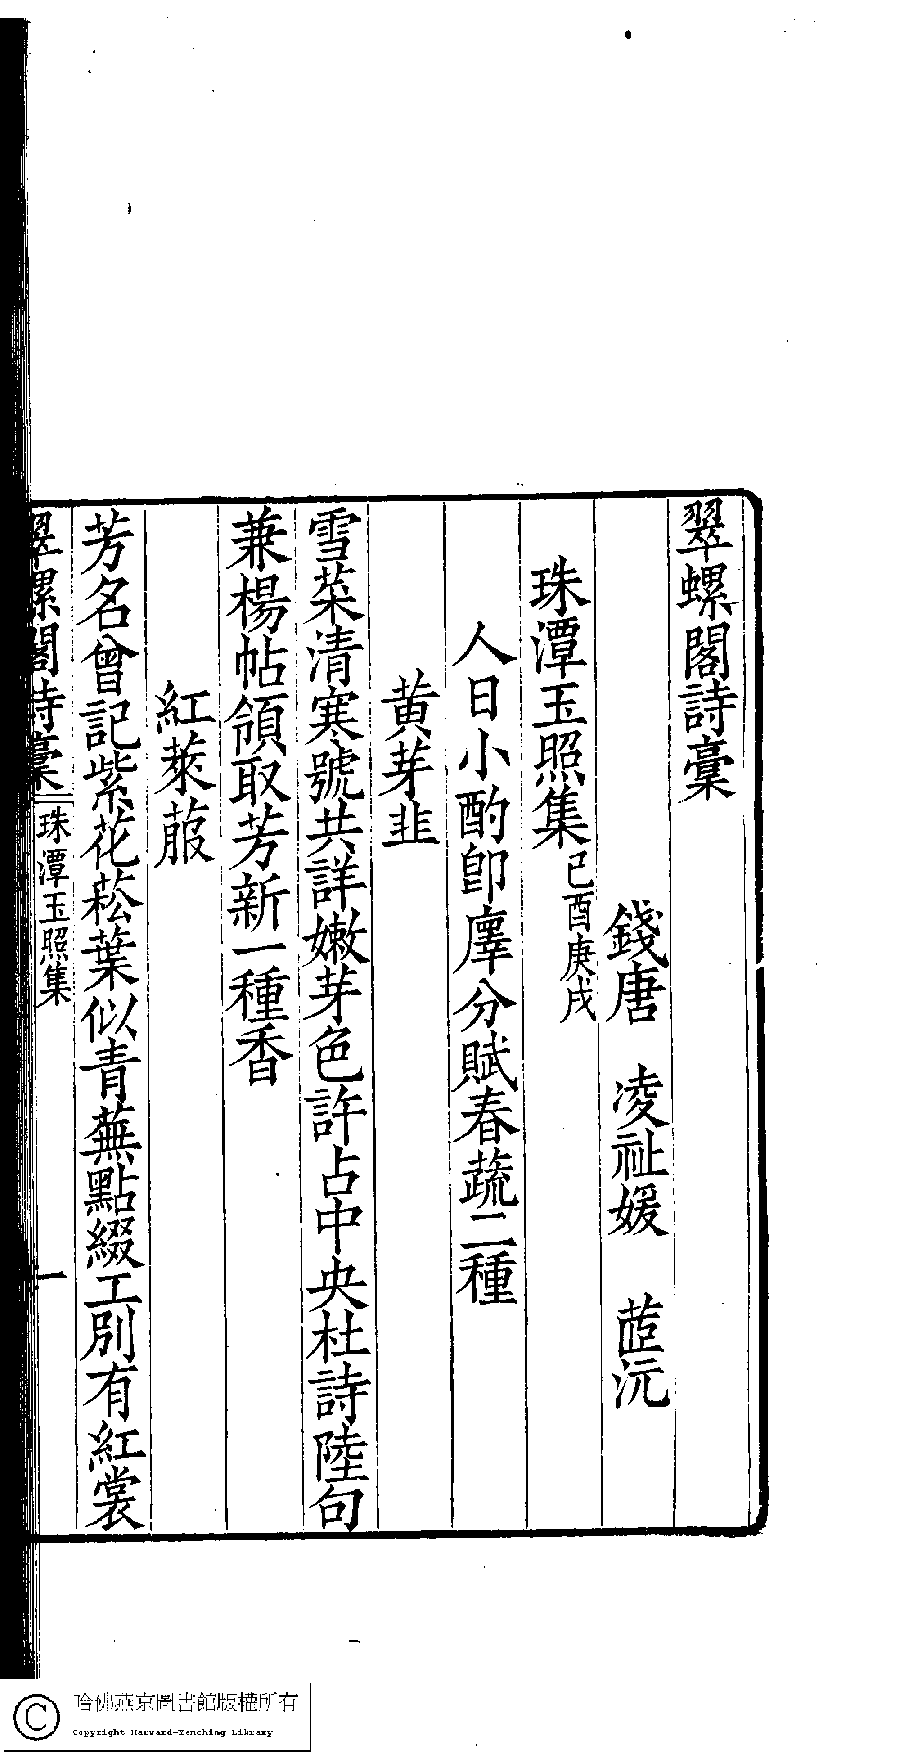 翠螺閣詩稾
錢唐　凌祉媛　茝沅
珠潭玉照集己酉庚戌
人日小酌卽席分賦春蔬二種
黄芽韭
雪菜清寒號共詳嫩芽色許占中央杜詩陸句
兼楊帖領取芳新一種香
紅萊菔
芳名曾記紫花菘葉似青蕪點綴工別有紅裳
翠螺閣詩稾　珠潭玉照集　一
哈佛燕京圖書館版權所有
Copyright Harvard-Yenching Library